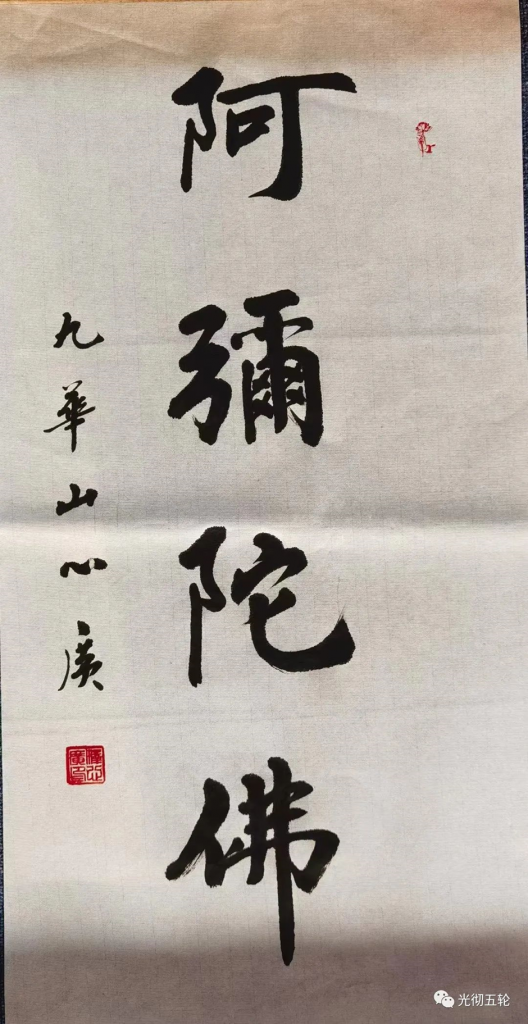 阿彌陀佛
九華山心廣
光彻五轮